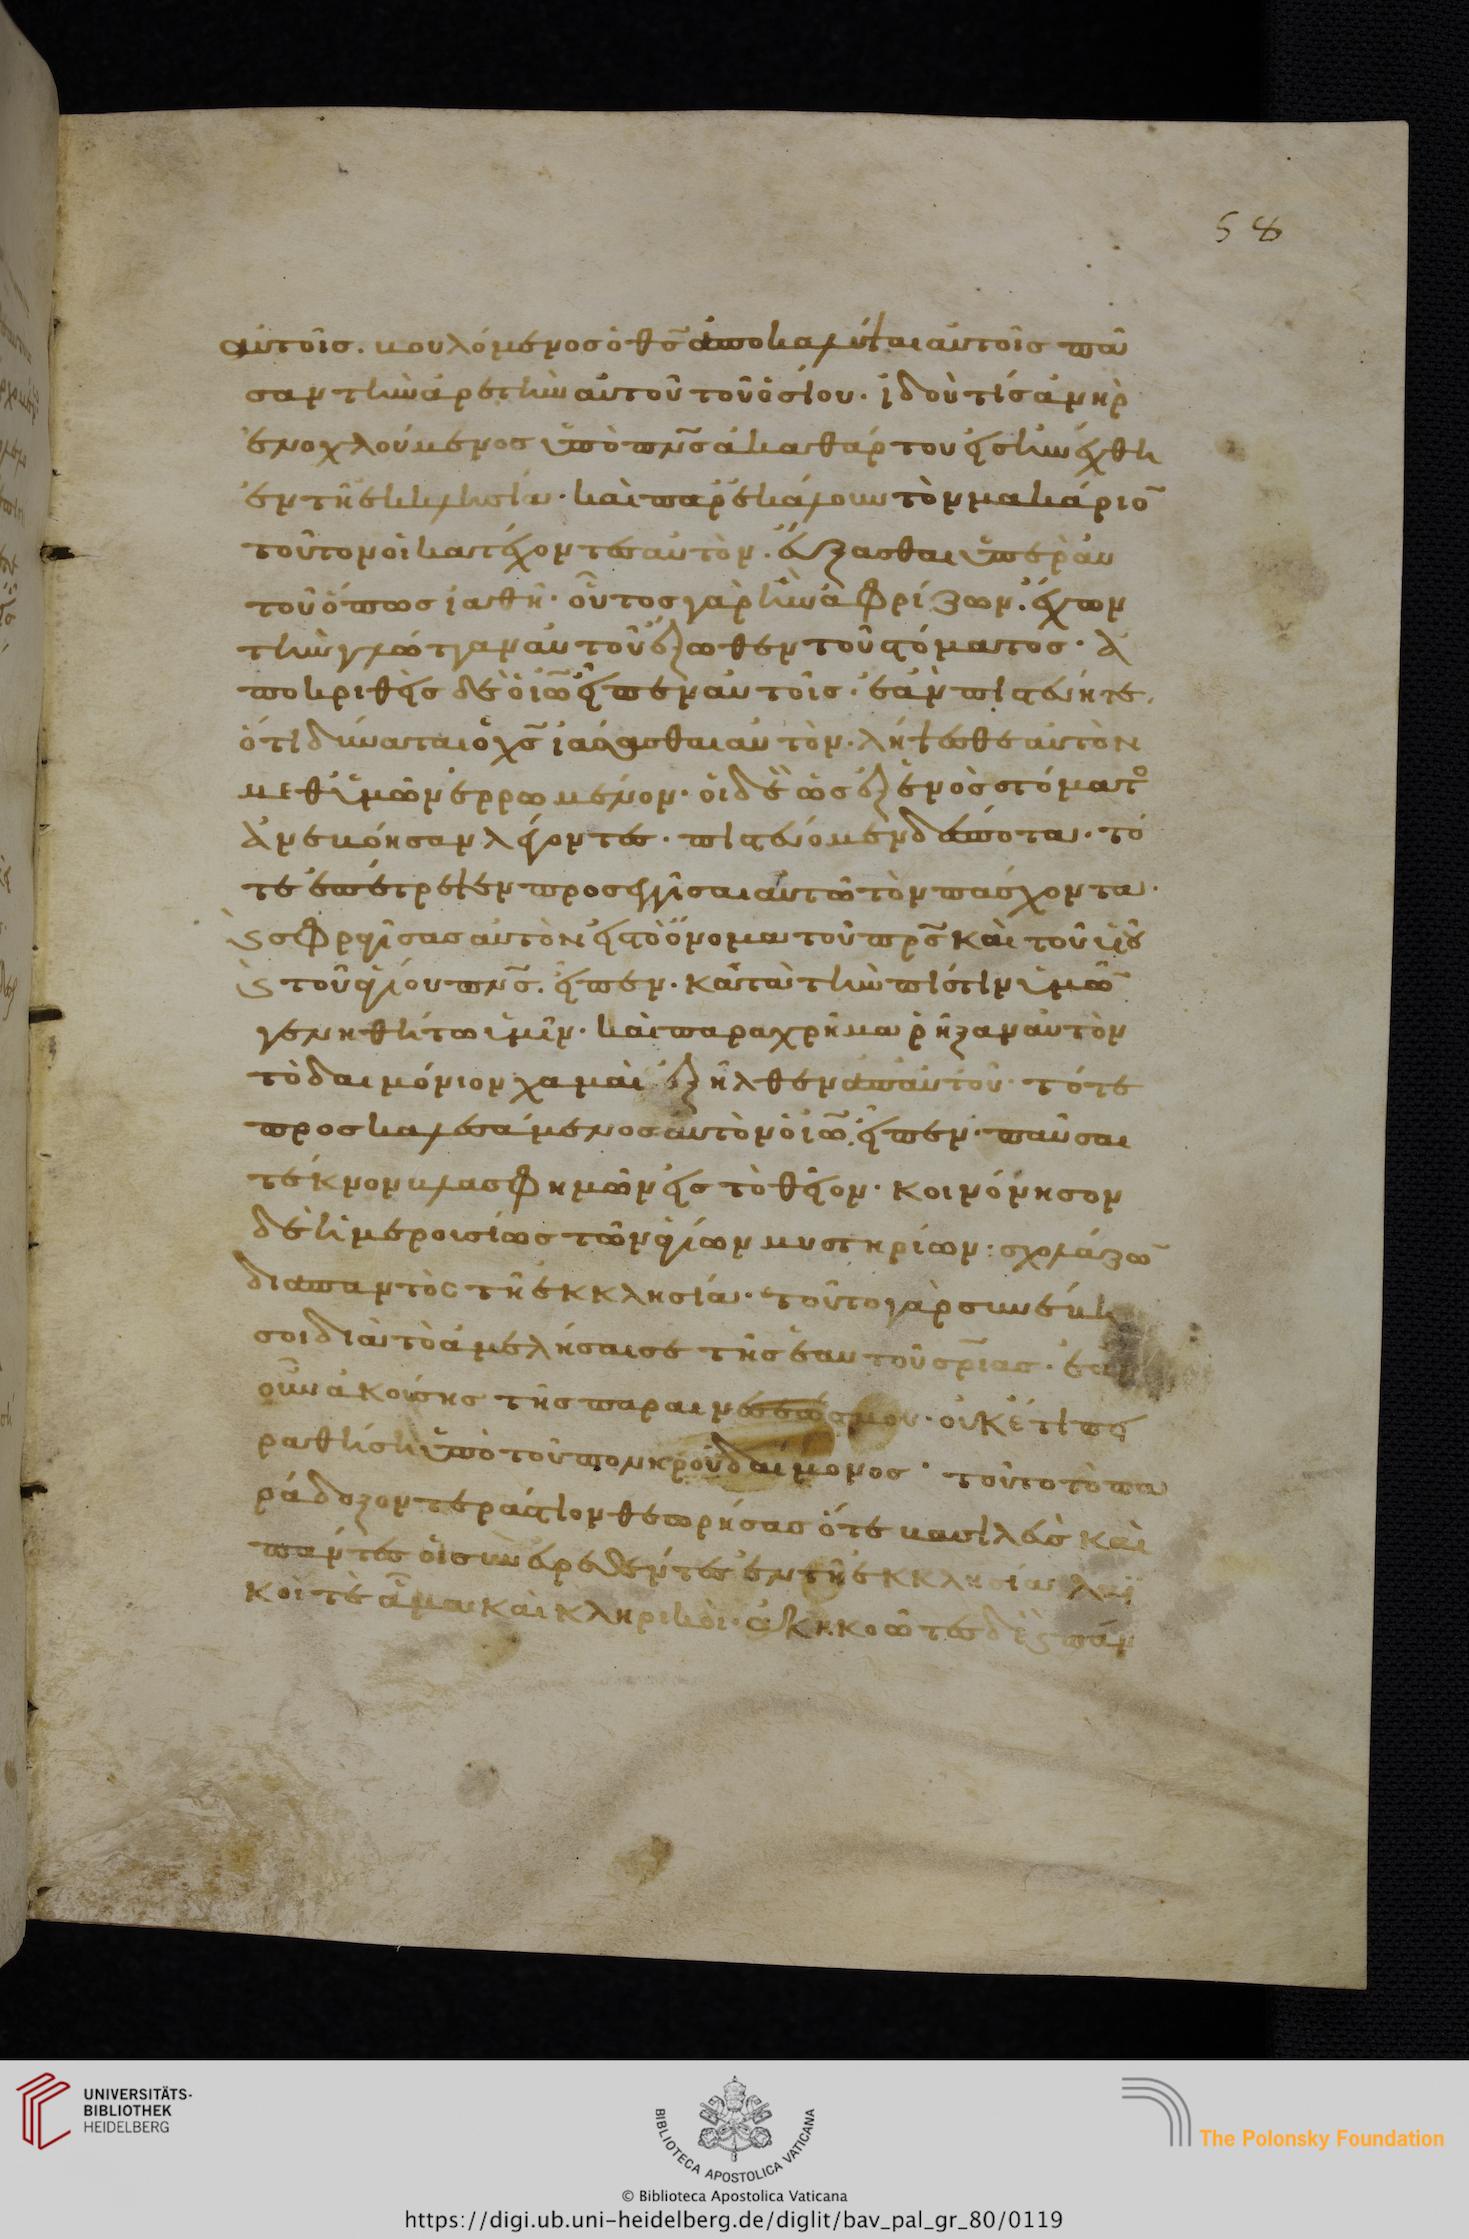 58
αὐτοῖσ. βουλόμενος ὁ θς̅ ἀποκαλύψαι αὐτοῖσ πᾶ
σαν τὴν ἀρετὴν αὐτοῦ τοῦ ὁσίου. ἰδοὺ τίσ ἀνὴρ
ἐνοχλούμενοσ ὑπὸ πνσ̅ ἀκαθάρτου εἰσηνέχθη
ἐν τῆ ἐκκλησία. καὶ παρεκάλουν τὸν μακάριο̅
τοῦτον οἱ κατέχοντεσ αὐτὸν. εὔξασθαι ὑπὲρ αὐ
τοῦ ὅπωσ ἰαθῆ. οὗτοσ γὰρ ἦν ἀφρίζων. ἔχων
τὴν γλώτταν αὐτοῦ ἔξωθεν τοῦ στόματοσ. ἀ
ποκριθεὶσ δὲ ὁ ἰω̅ εἶπεν αὐτοῖσ. ἐὰν πιστεύητε,
ὅτι δύναται ὁ χσ̅ ἰάσασθαι αὐτὸν. λήψεσθε αὐτὸν
μεθ ὑμῶν ἐρρωμένον. οἱ δὲ ὡσ ἐξ ἑνὸσ στόματο
ἀνεβόησαν λέγοντεσ. πιστεύομεν δέσποτα. τό
τε ἐπέτρεψεν προσεγγίσαι αὐτῶ τὸν πάσχοντα.
ϗ σφραγίσασ αὐτὸν εἰσ τὸ ὄνομα τοῦ πρσ̅ καὶ τοῦ υἱοῦ
ϗ τοῦ ἁγίου πνσ̅. εἶπεν. κατὰ τὴν πίστιν ὑμῶ̅
γενηθήτω ὑμῖν. καὶ παραχρῆμα ῥῆξαν αὐτὸν
τὸ δαιμόνιον χαμαὶ ἐξῆλθεν ἀπαυτοῦ. τότε
προσκαλεσάμενοσ αὐτὸν ὁ ἰω̅. εἶπεν. παῦσαι
τέκνον βλασφημῶν εἰσ τὸ θεῖον. κοινόνησον
δὲ ἡμεροισίωσ τῶν ἁγίων μυστηρίων. σχολάζω̅
διαπαντὸσ τῆ ἐκκλησία. τοῦτο γὰρ συνέβη
σοι διὰ τὸ ἀμελήσαι σε τῆσ ἑαυτοῦ σρ̅ιασ. ἐὰν
οὖν ἀκούσησ τῆσ παραινέσεώσ μου. οὐκέτι πει
ραθήση ὑπὸ τοῦ πονηροῦ δαίμονοσ. τοῦτο τὸ πα
ράδοξον τεράστιον θεωρήσασ ὅτε βασιλεὺσ καὶ
πάντεσ οἱ συνερεθέντεσ ἐν τῆ ἐκκλησία λαϊ
κοί τὲ ἅμα καὶ κληρικοὶ. ἀκηκοῶτεσ δὲ ϗ πάν
UNIVERSITÄTS-
BIBLIOTHEK
HEIDELBERG
BIBLIOTECA APOSTOLICA VATICANA
© Biblioteca Apostolica Vaticana
The Polonsky Foundation
https://digi.ub.uni-heidelberg.de/diglit/bav_pal_gr_80/0119